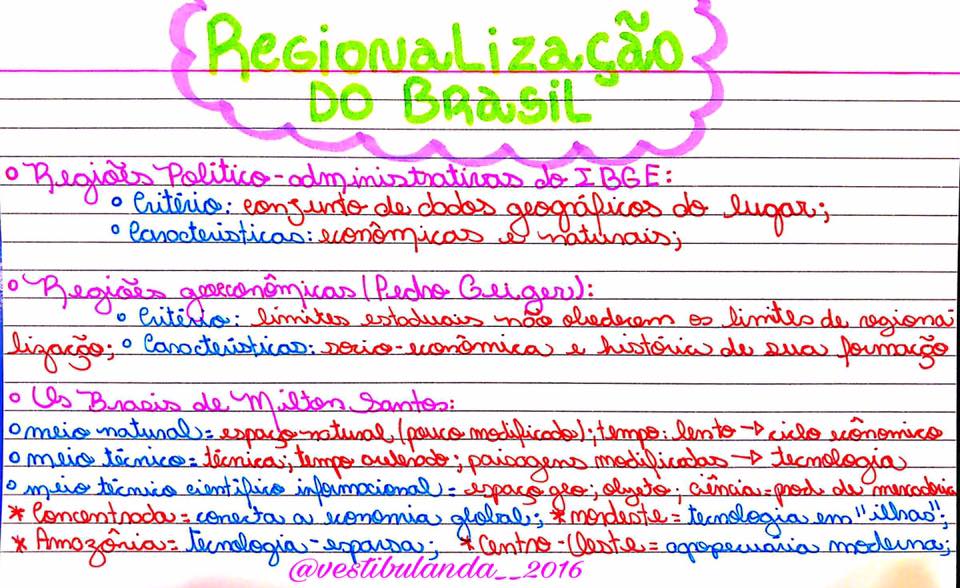 Regionalização
do Brasil
• Regiões Político-administrativas do IBGE:
• Critério: conjunto de dados geográficos do lugar;
• Características: econômicas e naturais;
• Regiões geoeconômicas (Pedro Geiger):
• Critério: limites estaduais não obedecem os limites de regiona
lização; • Características: socio-econômica e história de sua formação
• Os Brasis de Milton Santos:
• meio natural = espaço natural (pouco modificado); tempo: lento → ciclo econômico
• meio técnico = técnica; tempo acelerado; paisagens modificadas → tecnologia
• meio técnico científico informacional = espaço geo; objeto; ciência = prod. de mercadoria
* Concentrada = conecta a economia global; * nordeste = tecnologia em "ilhas";
* Amazônia = tecnologia-esparsa; * Centro-Oeste = agropecuária moderna;
@vestibulanda__2016